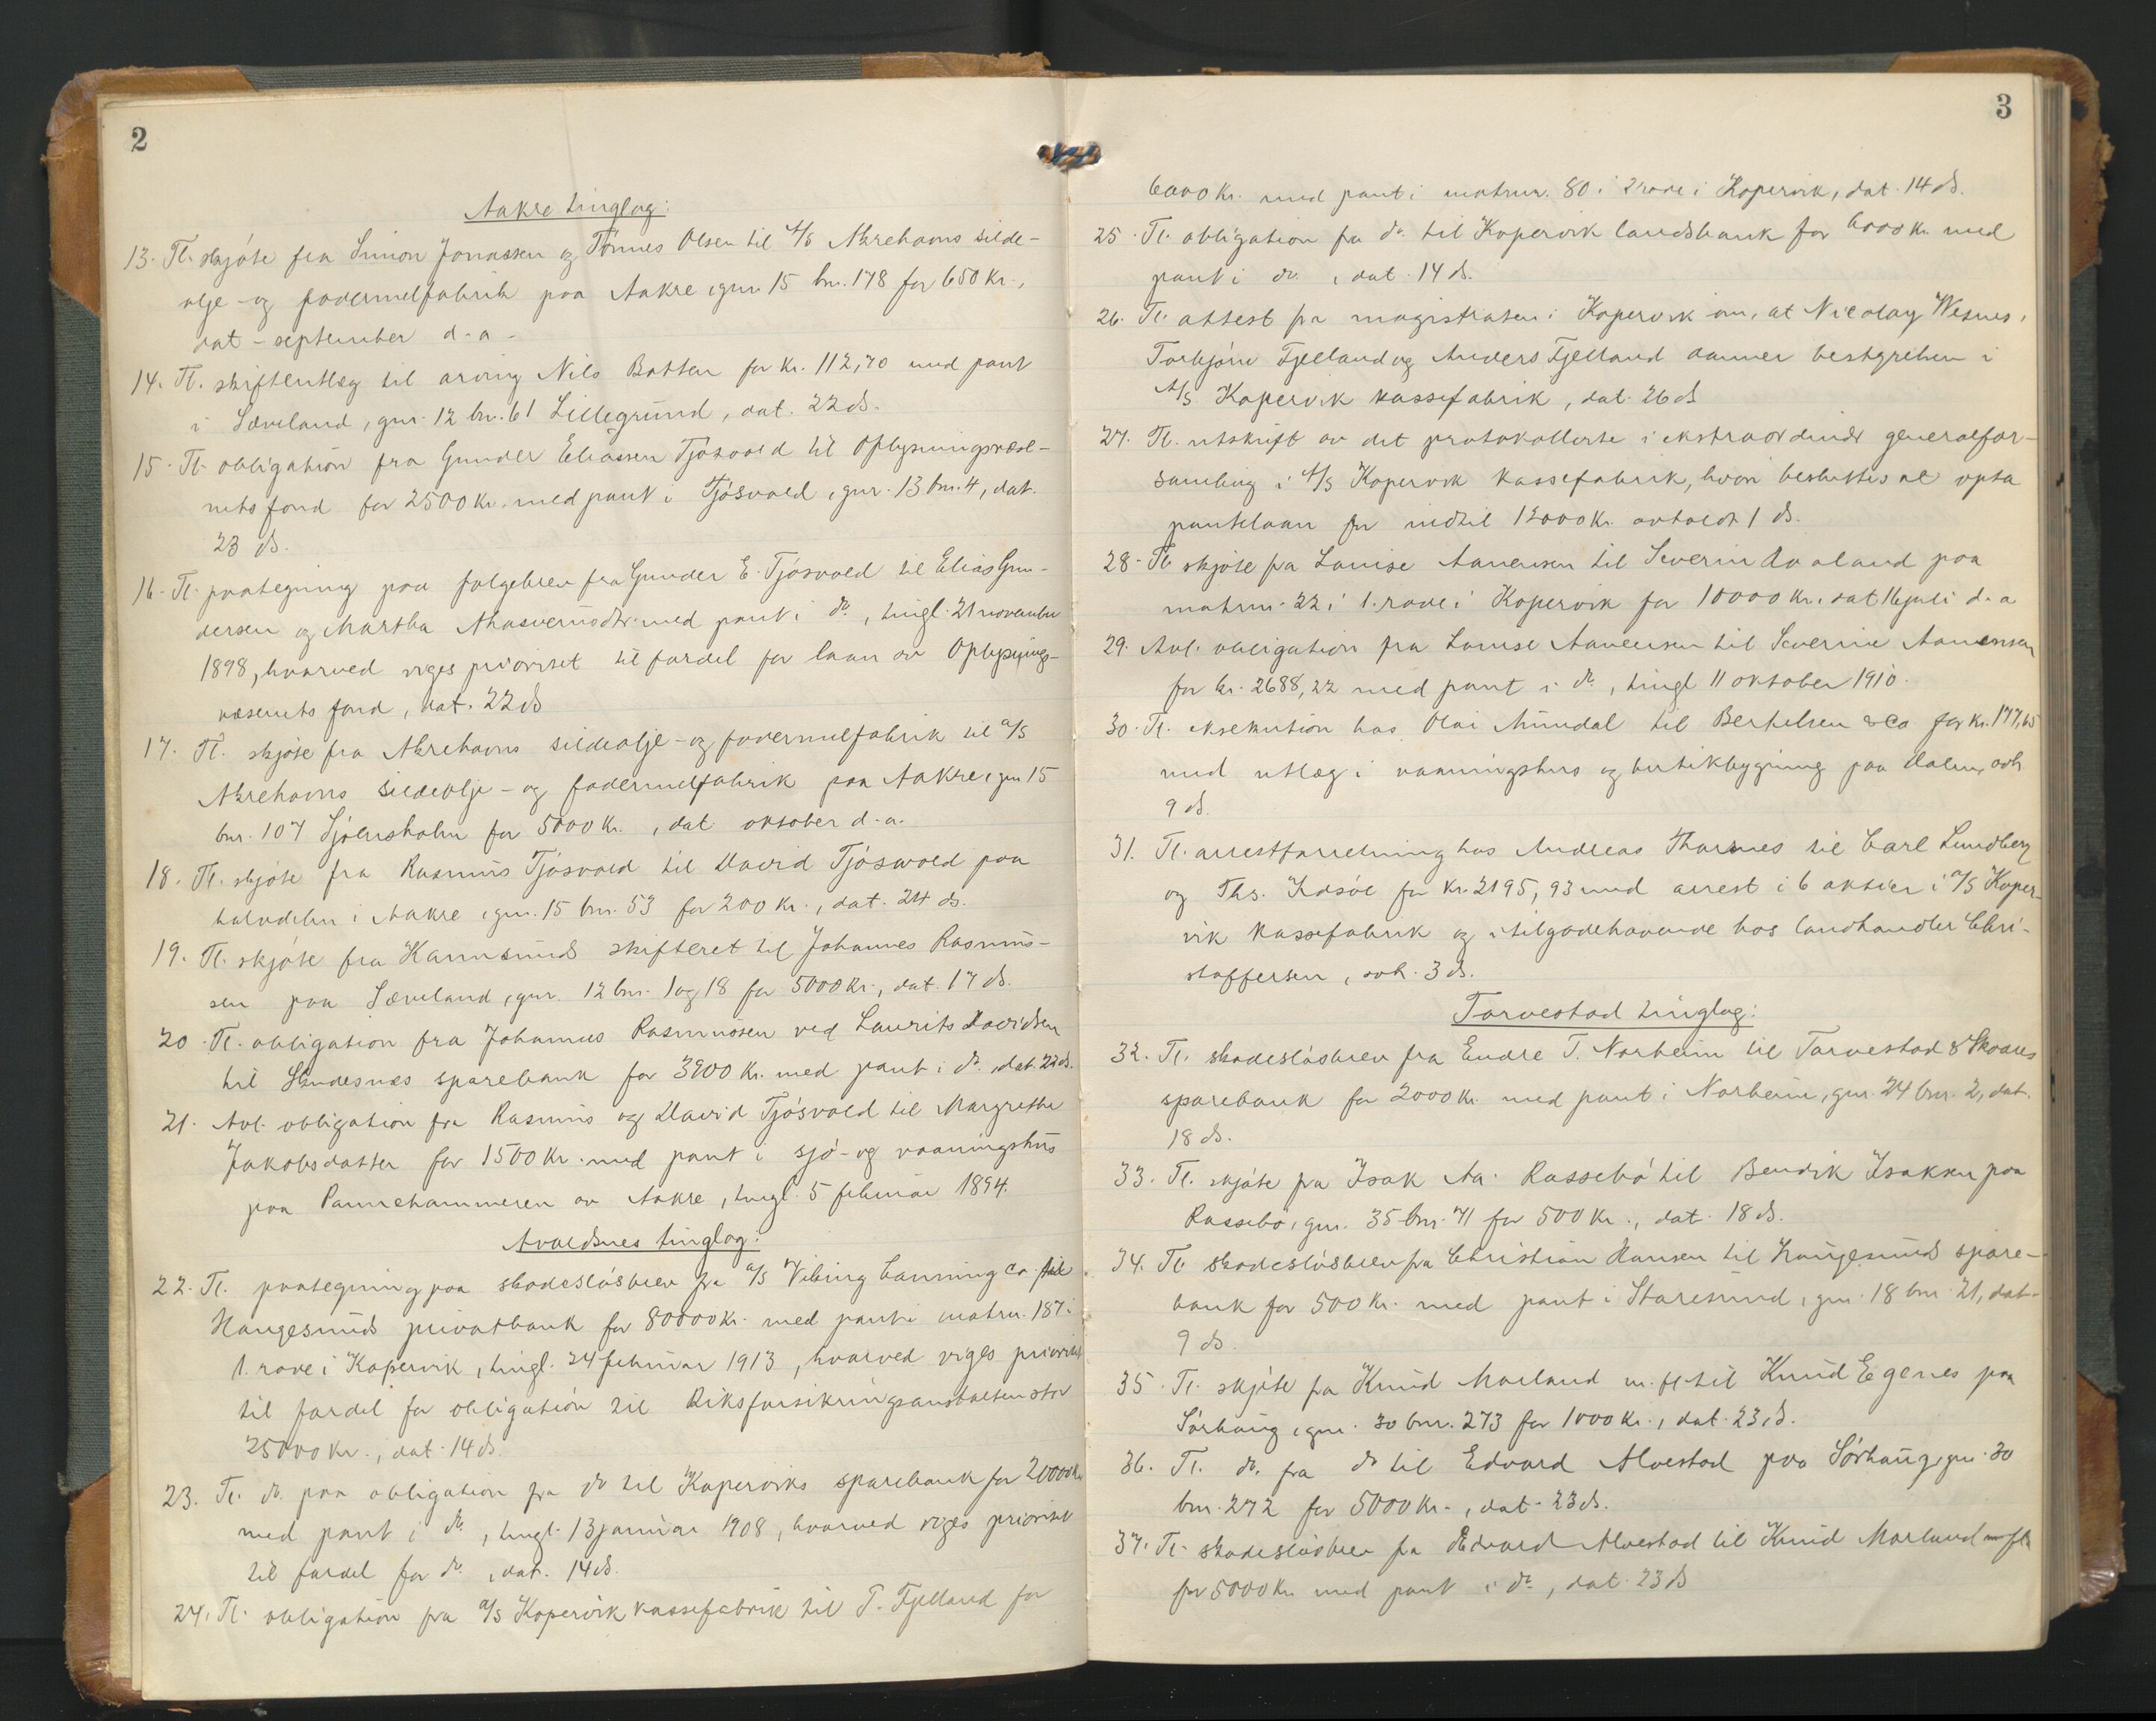 2
Aakre tinglag:
13. Tl. skjøte fra Simon Jonassen og Tønnes Olsen til A/S Akrehavns silde-
olje- og fodermelfabrik paa Aakre, gnr. 15 bnr. 178 for 650 kr.,
dat - september d. a.
14. Tl. skifteutlæg til arving Nils Batten for kr. 112,70 med pant
i Sæveland, gnr. 12 bnr. 61 Lillegrund, dat. 22 ds.
15. Tl. obligation fra Gunder Eliassen Tjøsvold til Oplysningsvæse-
nets fond for 2500 kr. med pant i Tjøsvold, gnr. 13 bnr. 4, dat.
23 ds.
16. Tl. paategning paa følgebrev fra Gunder E. Tjøsvold til Elias Gun-
dersen og Martha Ahasverusdtr. med pant i do, tingl. 21 november
1898, hvorved viges prioritet til fordel for laan av Oplysnings-
væsenets fond, dat. 22 ds
17. Tl. skjøte fra Akrehavns sildeolje- og fodermelfabrik til A/S
Akrehavns sildeolje- og fodermelfabrik paa Aakre, gnr 15
bnr. 107 Sjøensholm for 5000 kr., dat oktober d. a.
18. Tl. skjøte fra Rasmus Tjøsvold til David Tjøsvold paa
halvdelen i Aakre, gnr. 15 bnr. 53 for 200 kr., dat. 24 ds.
19. Tl. skjøte fra Karmsunds skifteret til Johannes Rasmus-
sen paa Sæveland, gnr. 12 bnr. 1 og 18 for 5000 kr., dat. 17 ds.
20. Tl. obligation fra Johannes Rasmussen ved Laurits Davidsen
til Skudesnes sparebank for 3900 kr. med pant i do, dat. 22 ds.
21. Avl. obligation fra Rasmus og David Tjøsvold til Margrethe
Jakobsdatter for 1500 kr. med pant i sjø- og vaaningshus
paa Pannehammeren av Aakre, tingl. 5 februar 1894.
Avaldsnes tinglag:
22. Tl. paategning paa skadesløsbrev fra A/S Viking Canning Co til
Haugesunds privatbank for 80000 kr. med pant i matrn. 187 i
1. rode i Kopervik, tingl. 24 februar 1913, hvorved viges prioritet
til fordel for obligation til Riksforsikringsanstalten stor
25000 kr., dat. 14 ds.
23. Tl. do. paa obligation fra do til Koperviks sparebank for 20000 kr
med pant i do, tingl. 13 januar 1908, hvorved viges prioritet
til fordel for do, dat. 14 ds.
24. Tl. obligation fra A/S Kopervik kassefabrik til T. Fjelland for
3
6000 kr. med pant i matrnr. 80 i 2 rode i Kopervik, dat. 14 ds.
25. Tl. obligation fra do. til Kopervik landsbank for 6000 kr. med
pant i do., dat. 14 ds.
26. Tl. attest fra magistraten i Kopervik om, at Nicolay Wesnes,
Torbjørn Fjelland og Anders Fjelland danner bestyrelsen i
A/S Kopervik kassefabrik, dat. 26 ds
27. Tl. utskrift av det protokollerte i ekstraordinær generalfor-
samling i A/S Kopervik kassefabrik, hvori besluttes at opta
pantelaan for indtil 12000 kr. avholdt 1 ds.
28. Tl. skjøte fra Louise Aanensen til Severin Avaland paa
matrnr. 22 i 1. rode i Kopervik for 10000 kr., dat 16 juli d. a
29. Avl. obligation fra Louise Aanensen til Severine Aanensen
for kr. 2688,22 med pant i do, tingl 11 oktober 1910.
30. Tl. eksekution hos Olai Mundal til Berthelsen & Co for kr. 177,65
med utlæg i vaaningshus og butikbygning paa Dalen, avh
9 ds.
31. Tl. arrestforretning hos Andreas Thornes til Carl Lundberg
og Ths. Idsøe for kr. 2195,93 med arrest i 6 aktier i A/S Koper-
vik kassefabrik og i tilgodehavende hos landhandler Chri-
stoffersen, avh. 3 ds.
Torvestad tinglag:
32. Tl. skadesløsbrev fra Endre T. Norheim til Torvestad & Skaares
sparebank for 2000 kr. med pant i Norheim, gnr. 24 bnr. 2, dat.
18 ds.
33. Tl. skjøte fra Isak Aa. Rossebø til Bendik Isaksen paa
Rossebø, gnr. 35 bnr. 71 for 500 kr., dat. 18 ds.
34. Tl. skadesløsbrev fra Christian Hansen til Haugesunds spare-
bank for 500 kr. med pant i Storesund, gnr. 18 bnr. 21, dat.
9 ds.
35. Tl. skjøte fra Knud Morland m. fl. til Knud Egenes paa
Sørhaug, gnr. 30 bnr. 273 for 1000 kr., dat. 23 ds.
36. Tl. do. fra do til Edvard Alvestad paa Sørhaug, gnr. 30
bnr. 272 for 5000 kr., dat. 23 ds.
37. Tl. skadesløsbrev fra Edvard Alvestad til Knud Morland m fl.
for 5000 kr. med pant i do, dat. 23 ds